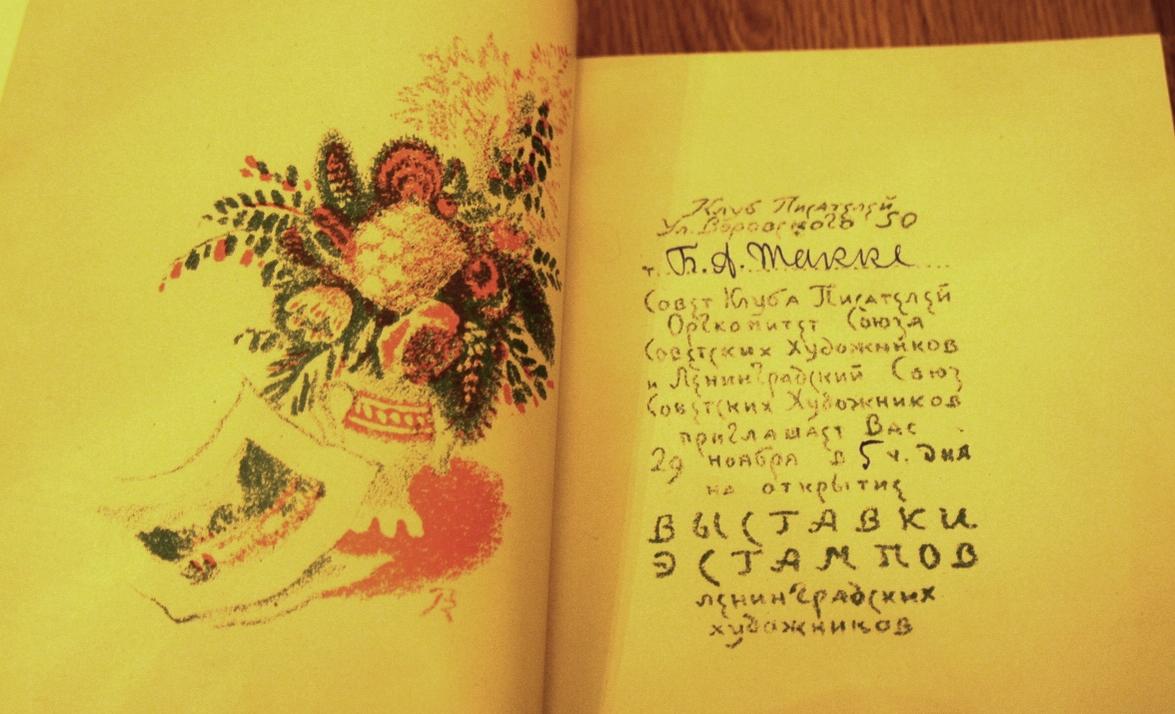 Клуб Писателей
Ул. Воровского 50
т. Б. А. Такке
Совет Клуба Писателей
Оргкомитет Союза
Советских Художников
и Ленинградский Союз
Советских Художников
приглашает Вас
29 ноября в 5 ч. дня
на открытие
ВЫСТАВКИ
ЭСТАМПОВ
ленинградских
художников